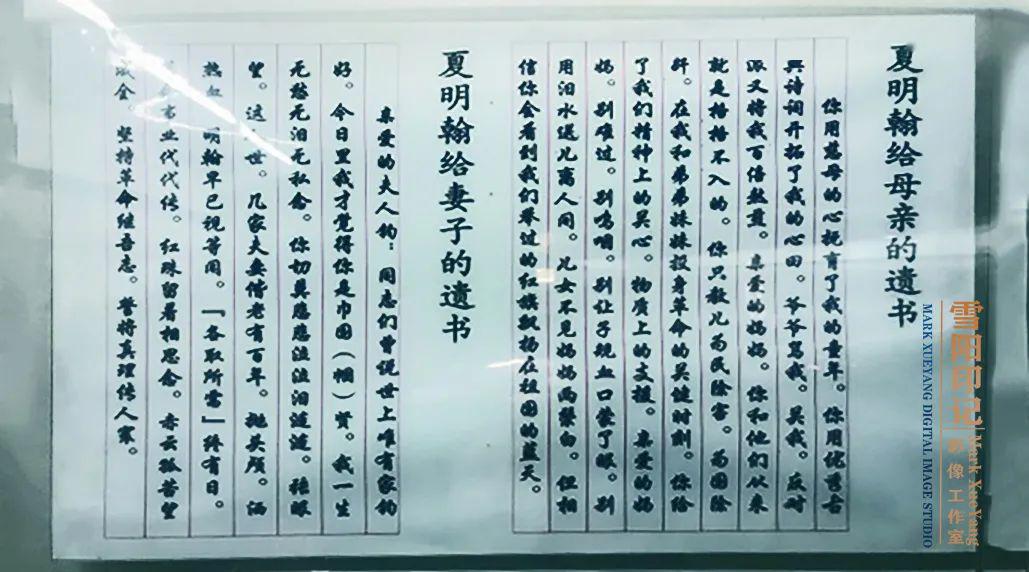 夏明翰给母亲的遗书
你用慈母的心抚育了我的童年。你用优秀古
典诗词开拓了我的心田。爷爷骂我。关我。反对
派又将我百倍熬煎。亲爱的妈妈。你和他们从来
就是格格不入的。你只教儿为民除害。为国除
奸。在我和弟弟妹妹投身革命的关键时刻。你给
了我们精神上的关心。物质上的支援。亲爱的妈
妈。别难过。别呜咽。别让子规血口蒙了眼。别
用泪水送儿离人间。儿女不见妈妈两鬓白。但相
信你会看到我们举过的红旗飘扬在祖国的蓝天。
夏明翰给妻子的遗书
亲爱的夫人钧：同志们曾说世上唯有家钧
好。今日里我才觉得你是巾国（帼）贤。我一生
无愁无泪无私念。你切莫悲悲泣泪涟涟。张眼
望。这世。几家夫妻偕老有百年。抛头颅。洒
热血。明翰早已视等闲。「各取所需」终有日。
事业代代传。红珠留着相思念。赤云孤苦望
成全。坚持革命继吾志。誓将真理传人寰。
雪阳印记
影像工作室
Mark XueYang
MARK XUEYANG DIGITAL IMAGE STUDIO